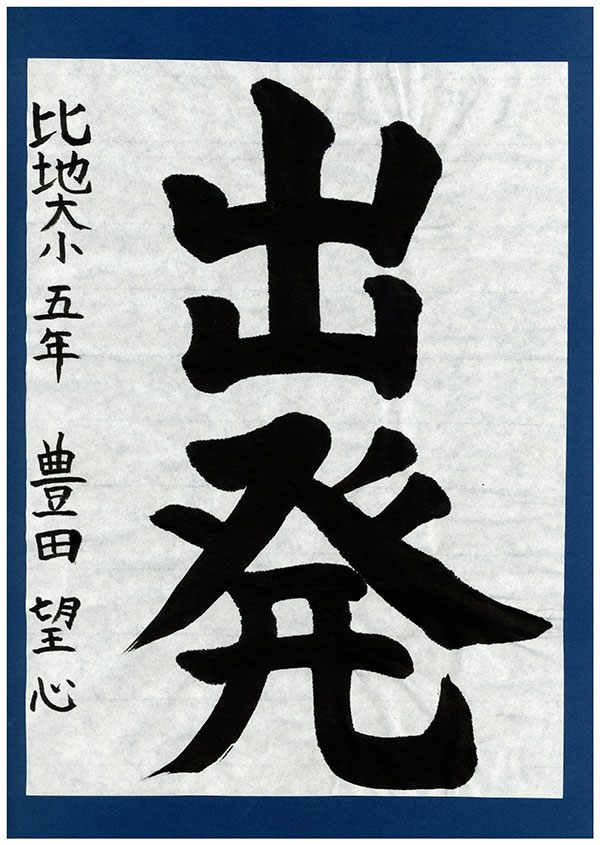 出発
比地大小 五年 豊田 望心